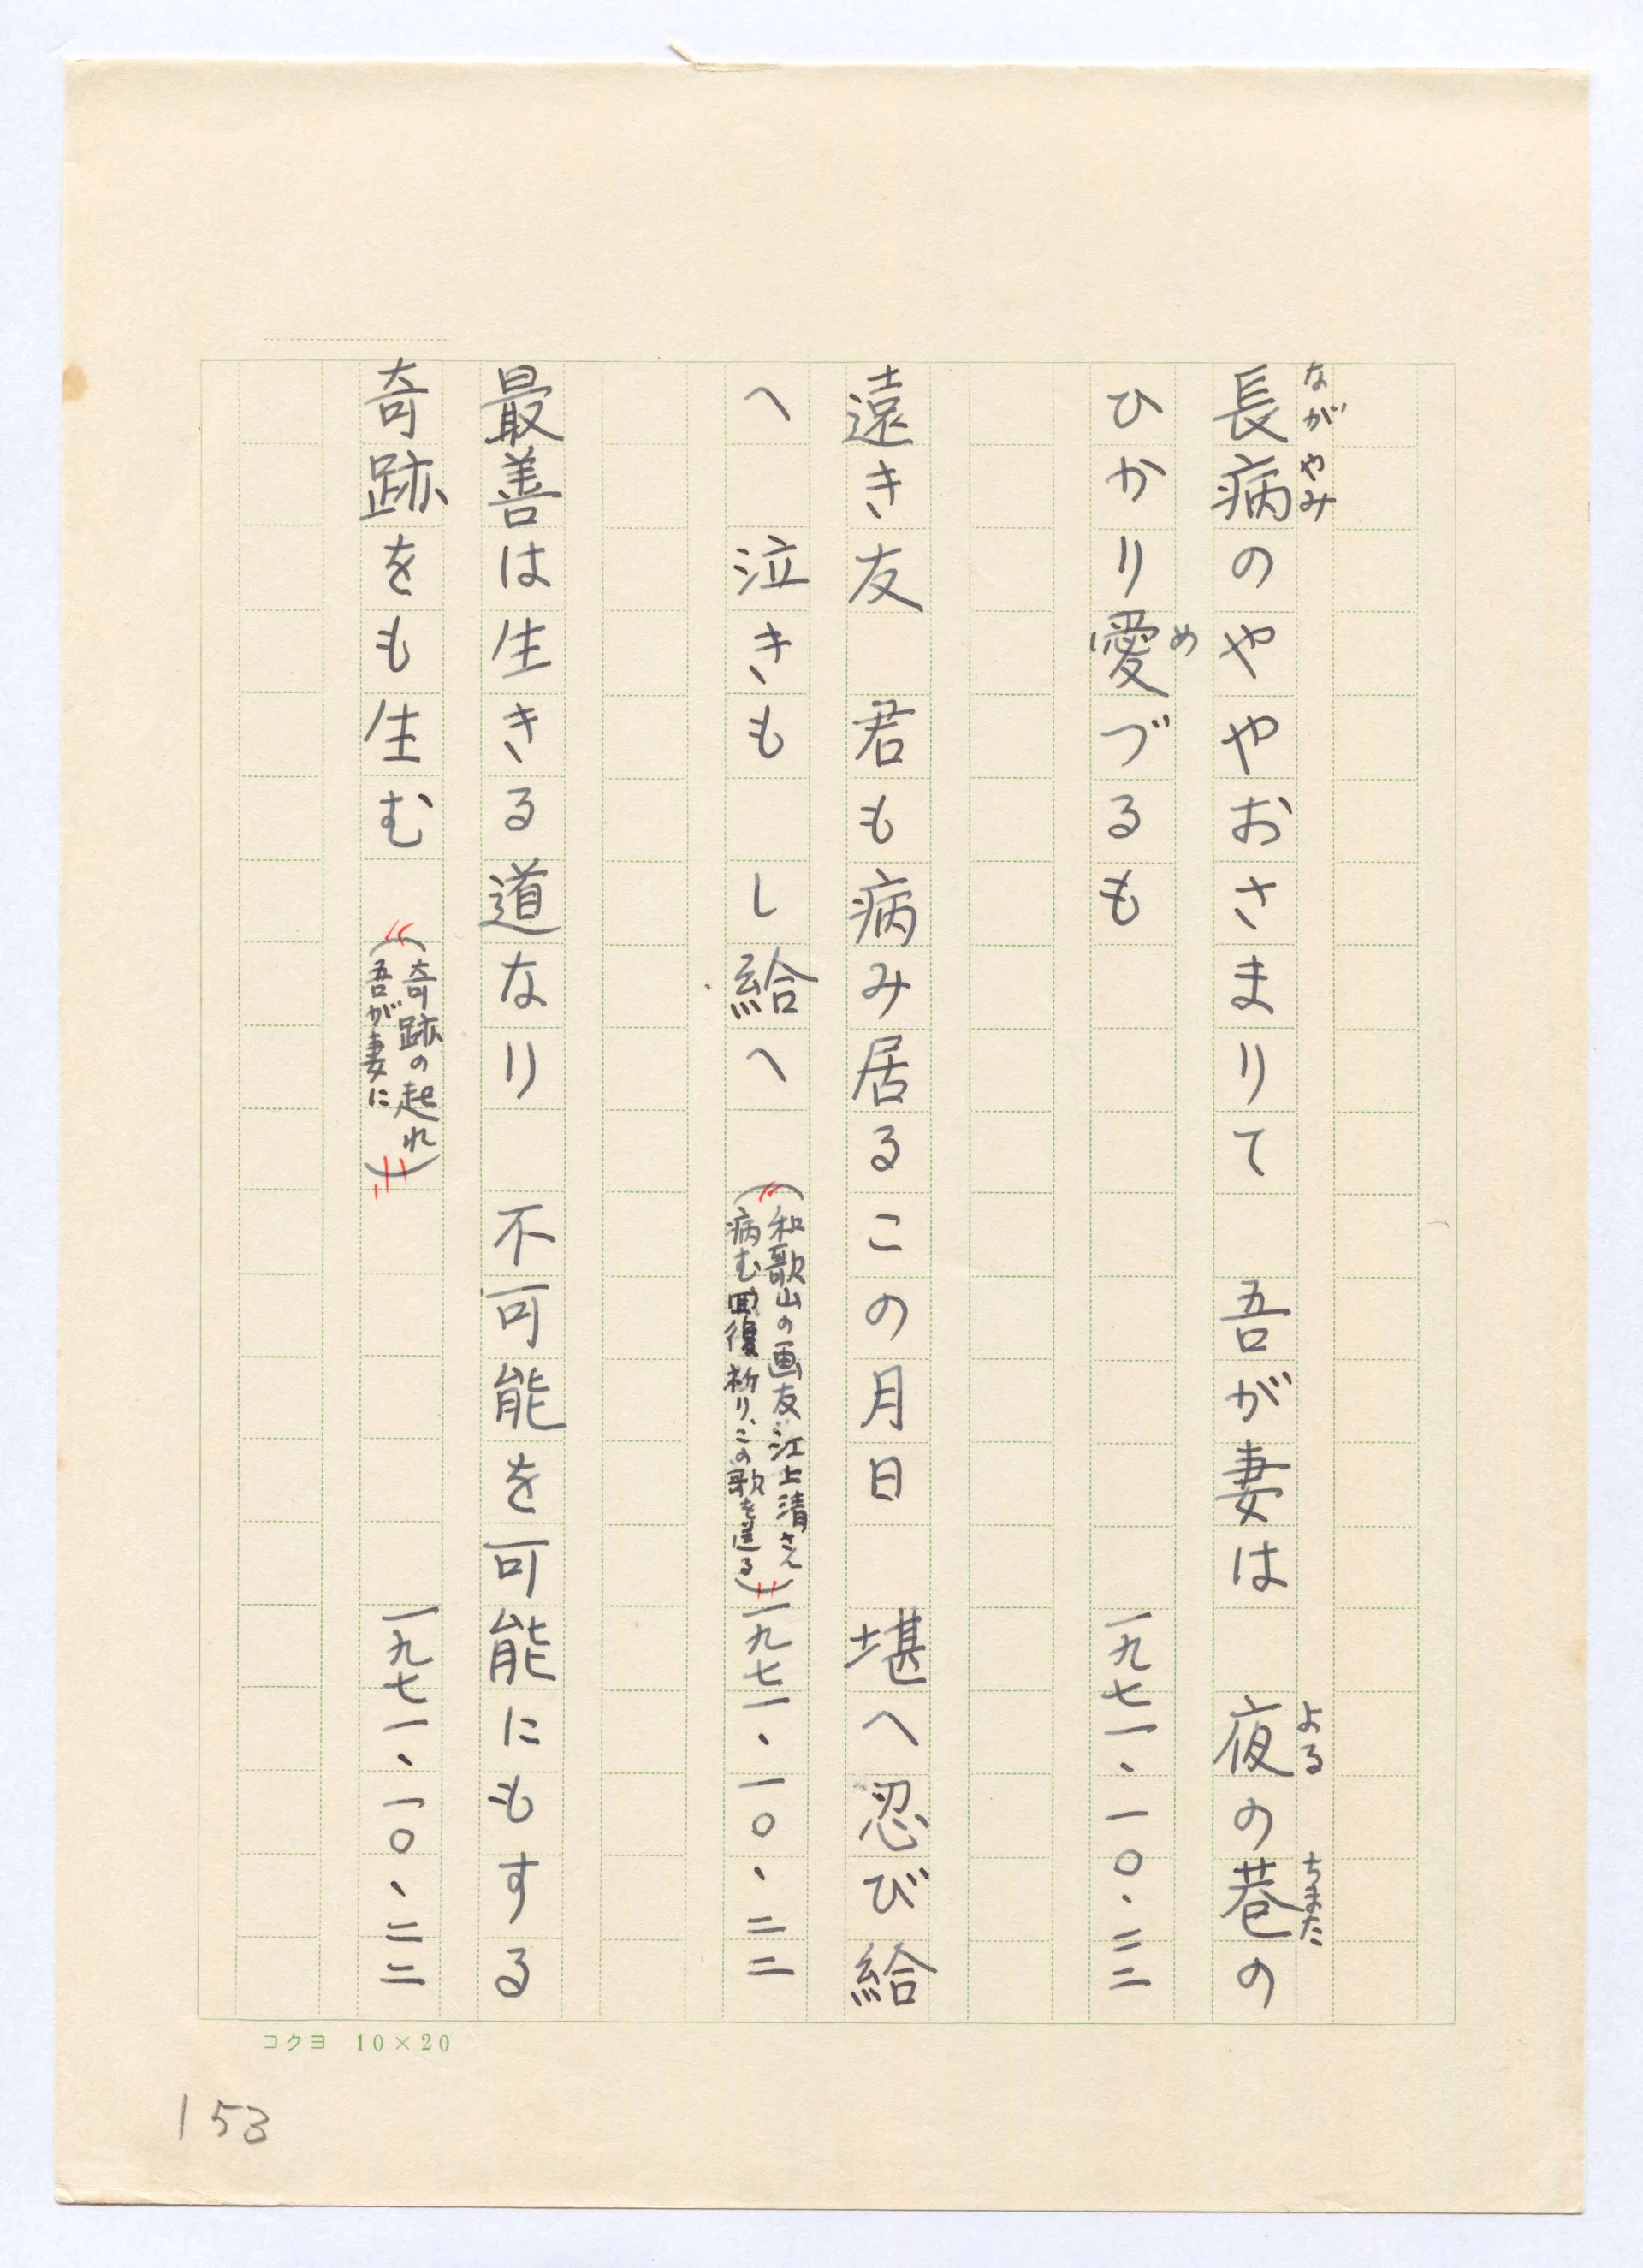 長病のややおさまりて　吾が妻は　夜の巷の
ながやみ
よる
ちまた
ひかり愛づるも　一九七一、一〇、二二
め
遠き友　君も病み居るこの月日　堪へ忍び給
へ　泣きも　し給へ　（和歌山の画友江上清さん
病む回復祈り、この歌を送る）一九七一、一〇、二二
最善は生きる道なり　不可能を可能にもする
奇跡をも生む　（奇跡の起れ
吾が妻に）　一九七一、一〇、二二
コクヨ 10×20
153